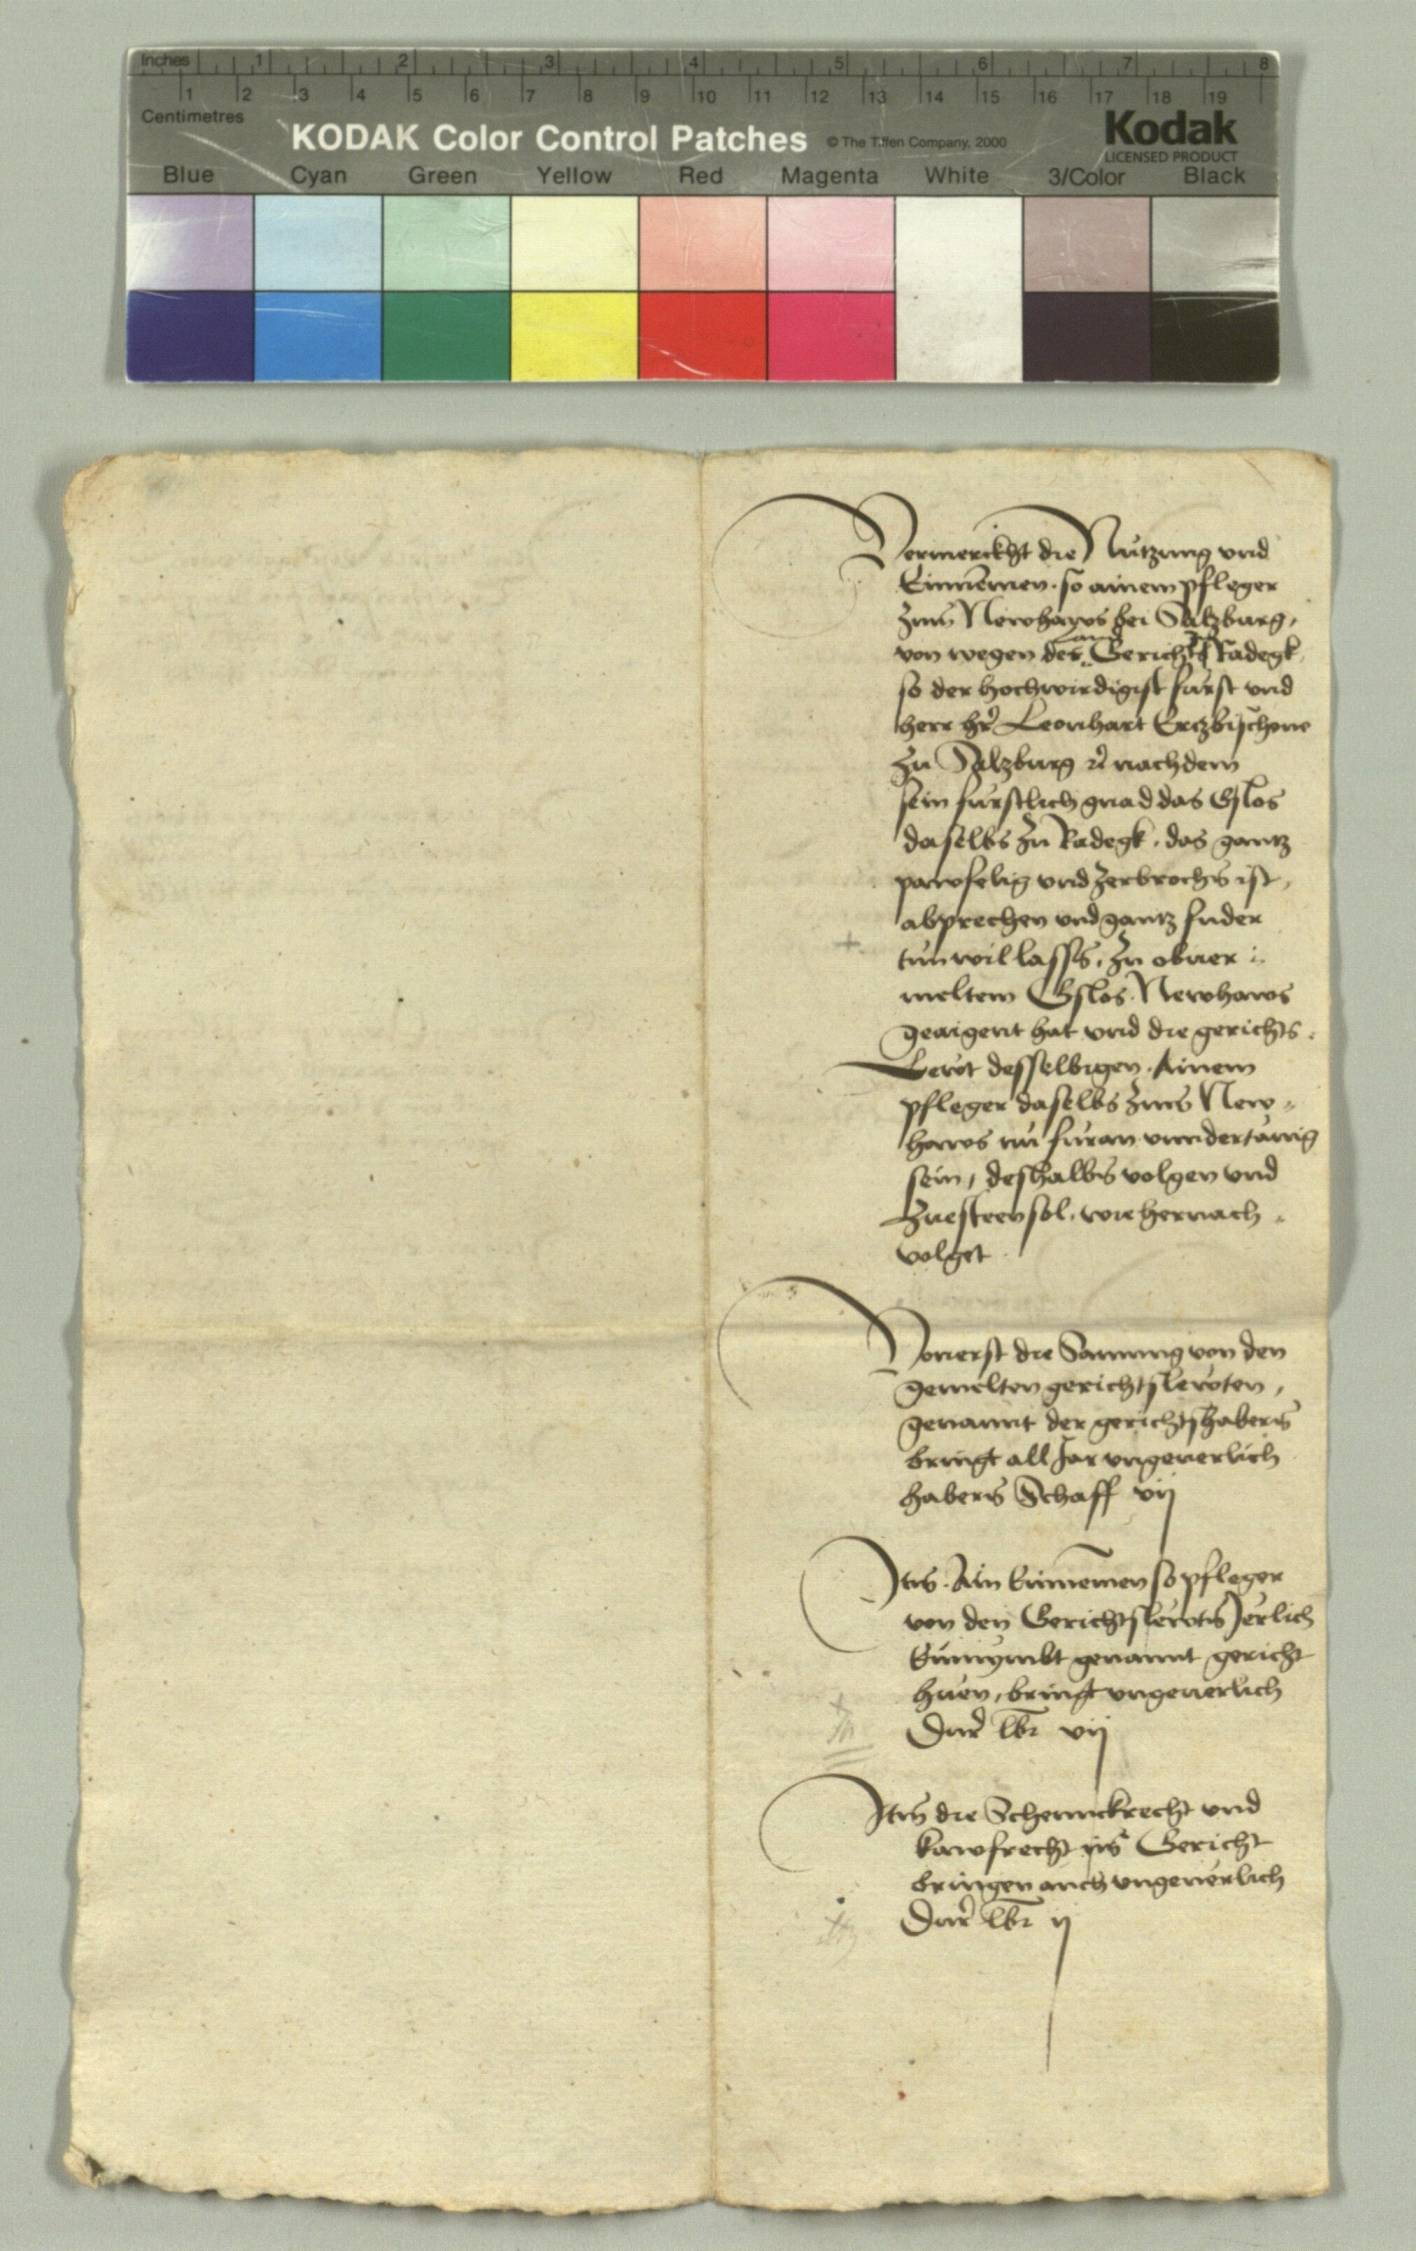 Inches 1 2 3 4 5 6 7 8
1 2 3 4 5 6 7 8 9 10 11 12 13 14 15 16 17 18 19
Centimetres
KODAK Color Control Patches © The Tiffen Company, 2000 Kodak
LICENSED PRODUCT
Blue Cyan Green Yellow Red Magenta White 3/Color Black
Vermerckht die Nutzung vnd
Einnemen. so ainem pfleger
zum Newhaws bei Saltzburg,
von wegen des Gerichts Radegk
so der hochwirdigist furst vnd
herr hr̃ Leonhart Ertzbischoue
zu Saltzburg nachdem
sein furstlich gnad das Gslos
daselbs zu Radegk. das gantz
pawfelig vnd zerbrochn ist,
abprechen vnd gantz
tun wil lassn, zu obuer
meltem Gslos Newhaws
geaigent hat vnd die gerichts
Lewt desselbigen. Ainem
pfleger daselbs zum New
haws nu furan vnndertanig
sein, deshalbn volgen vnd
zuesteen sol. wie hernach
volget
Vonerst die Sammung von den
gemelten gerichtslewten,
genannt der gerichtshabern
bringt all Jar vngeuerlich
habern Schaff vij
Itm. Ain Einnemen so pfleger
von den Gerichtslewtn Jerlich
Einnymbt genannt gericht
huen, bringt vngeuerlich
lb vij
Itm die Schennckrecht vnd
kawfrecht im Gericht
bringen auch vngeuerlich
lb ij